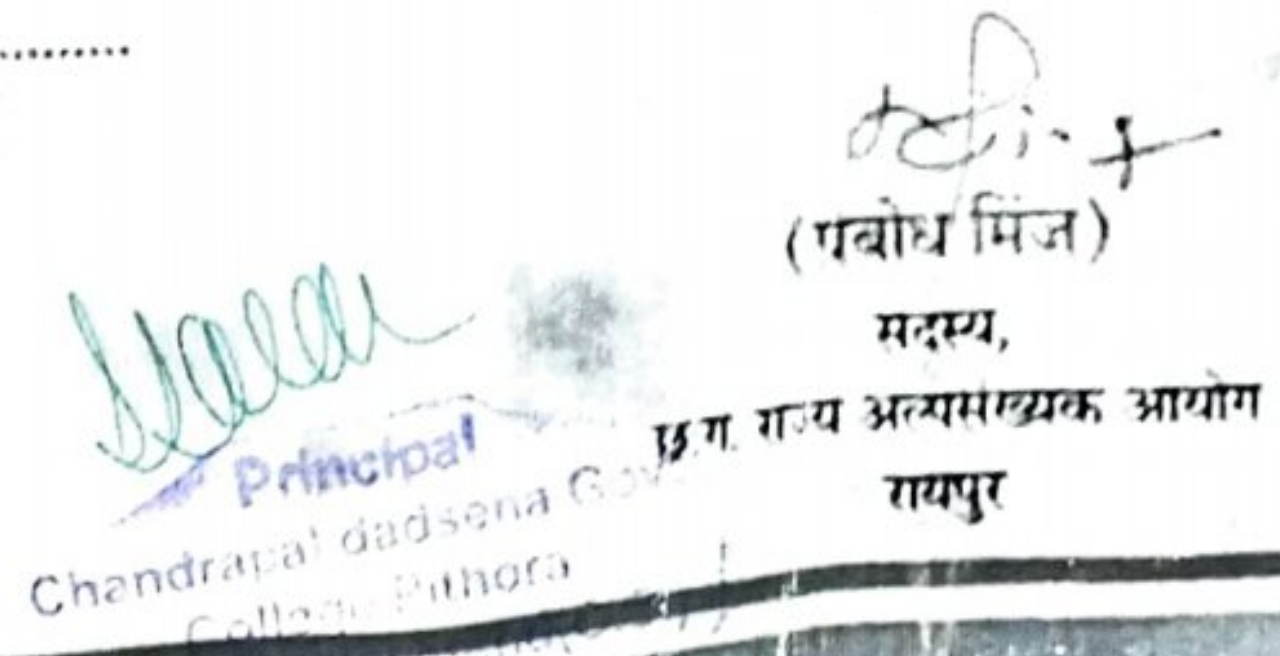 (पबोध मिंज)
सदस्य,
छ.ग. राज्य अल्पसंख्यक आयोग
रायपुर
Principal
Chandrapal dadsena Gov
College Pithora